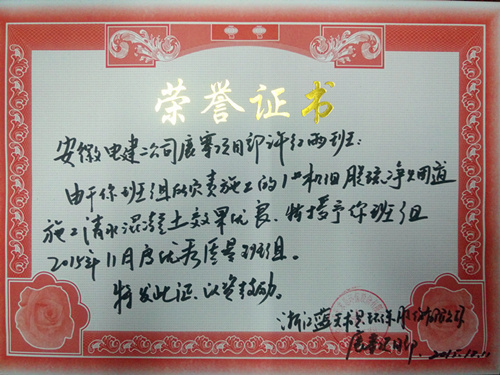 荣誉证书
安徽电建二公司展寨项目部许红雨班:
由于你班组所负责施工的1#机组脱硫净烟道
施工清水混凝土效果优良,特授予你班组
2015年11月度优秀质量班组。
特发此证,以资鼓励。
浙江蓝天求是环保股份有限公司
项目部 2015.12.1